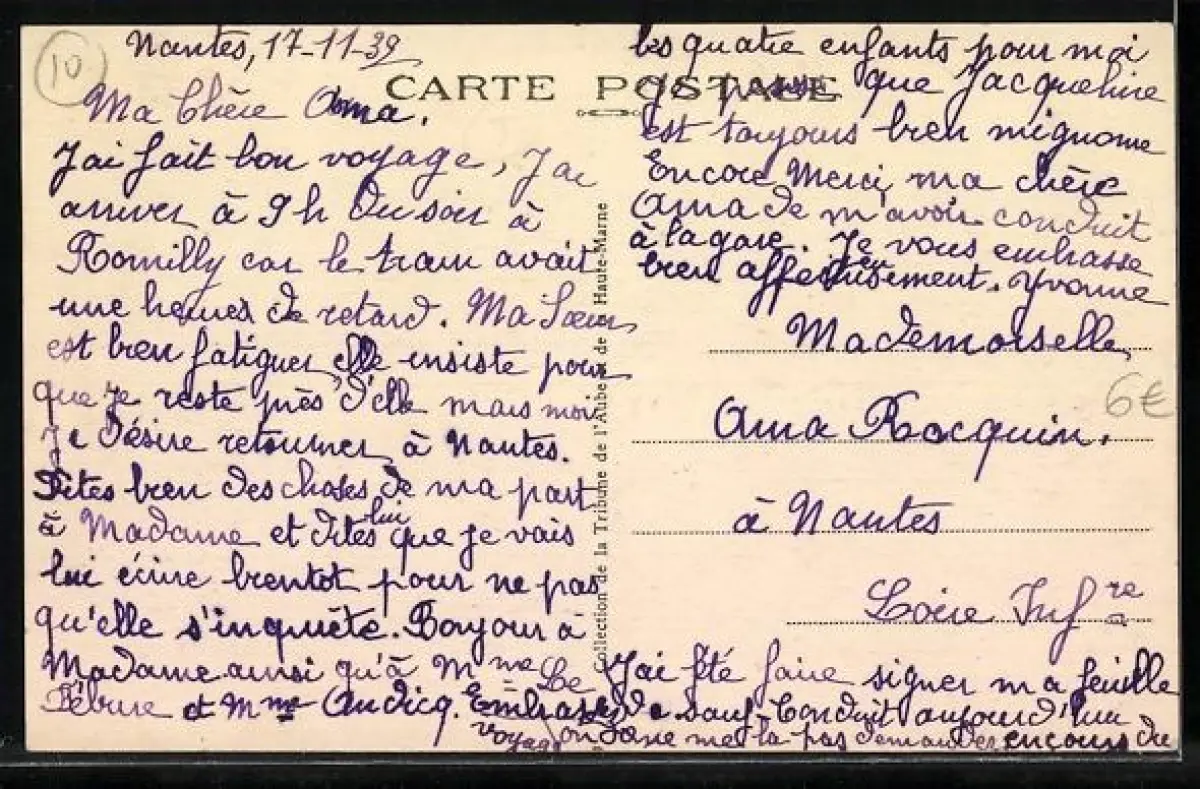 10
Nantes, 17-11-39
CARTE POSTALE
Ma Chère Anna.
J'ai fait bon voyage, J'ai
arriver à 9 h du soir à
Romilly car le train avait
une heures de retard. Ma Sœur
est bien fatiguer elle insiste pour
que je reste près d'elle mais moi
je désire retourner à Nantes.
Dites bien des choses de ma part
à Madame et dites lui que je vais
lui écrire bientot pour ne pas
qu'elle s'inquiète. Bonjour à
Madame ainsi qu'à Mme Le
Febvre et Mme Audicq. Embrassez
les quatre enfants pour moi
Je pense que Jacqueline
est toujours bien mignonne
Encore Merci ma chère
Anna de m'avoir conduit
à la gare. Je vous embrasse
bien affectueusement. Yvonne
Collection de la Tribune de l'Aube et de Haute-Marne
Mademoiselle
Anna Rocquin.
à Nantes
Loire Infre
6€
J'ai été faire signer ma feuille
de Sauf Conduit aujourd'hui
on ne me la pas demander en cours du
voyage